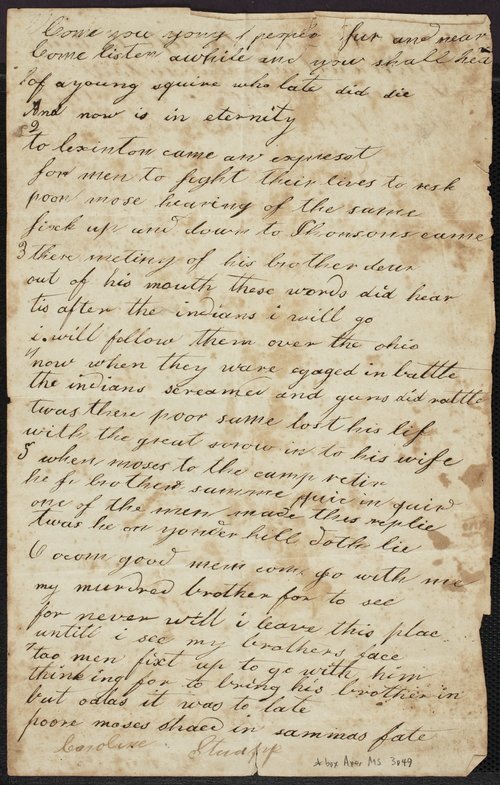 Come you yong people fur and near
Come listen awhile and you shall hear
of a young squire who late did die
And now is in eternity
2
to lexinton came an expresst
for men to fight their lives to resk
poor mose hearing of the same
fixk up and down to Thomsons came
3 there meting of his brother dour
out of his mouth these words did hear
tis after the indians i will go
i will follow them over the ohio
4
now when they ware egaged in battle
the indians screamed and guns did rattle
twas there poor same lost his lif
with the great srrow in to his wife
5 when moses to the camp retir
he fr brother samme quir in quird
one of the men made this replie
twas he on yonder hill doth lie
6 ocom good mem com go with me
my murdred brother for to see
for never will i leave this plac
untill i see my brothers face
too men fixt up to go with him
thinking for to bring his brother in
but oalas it was to late
poore moses shaed in sammas fate
Caroline
box Ayer MS 3049